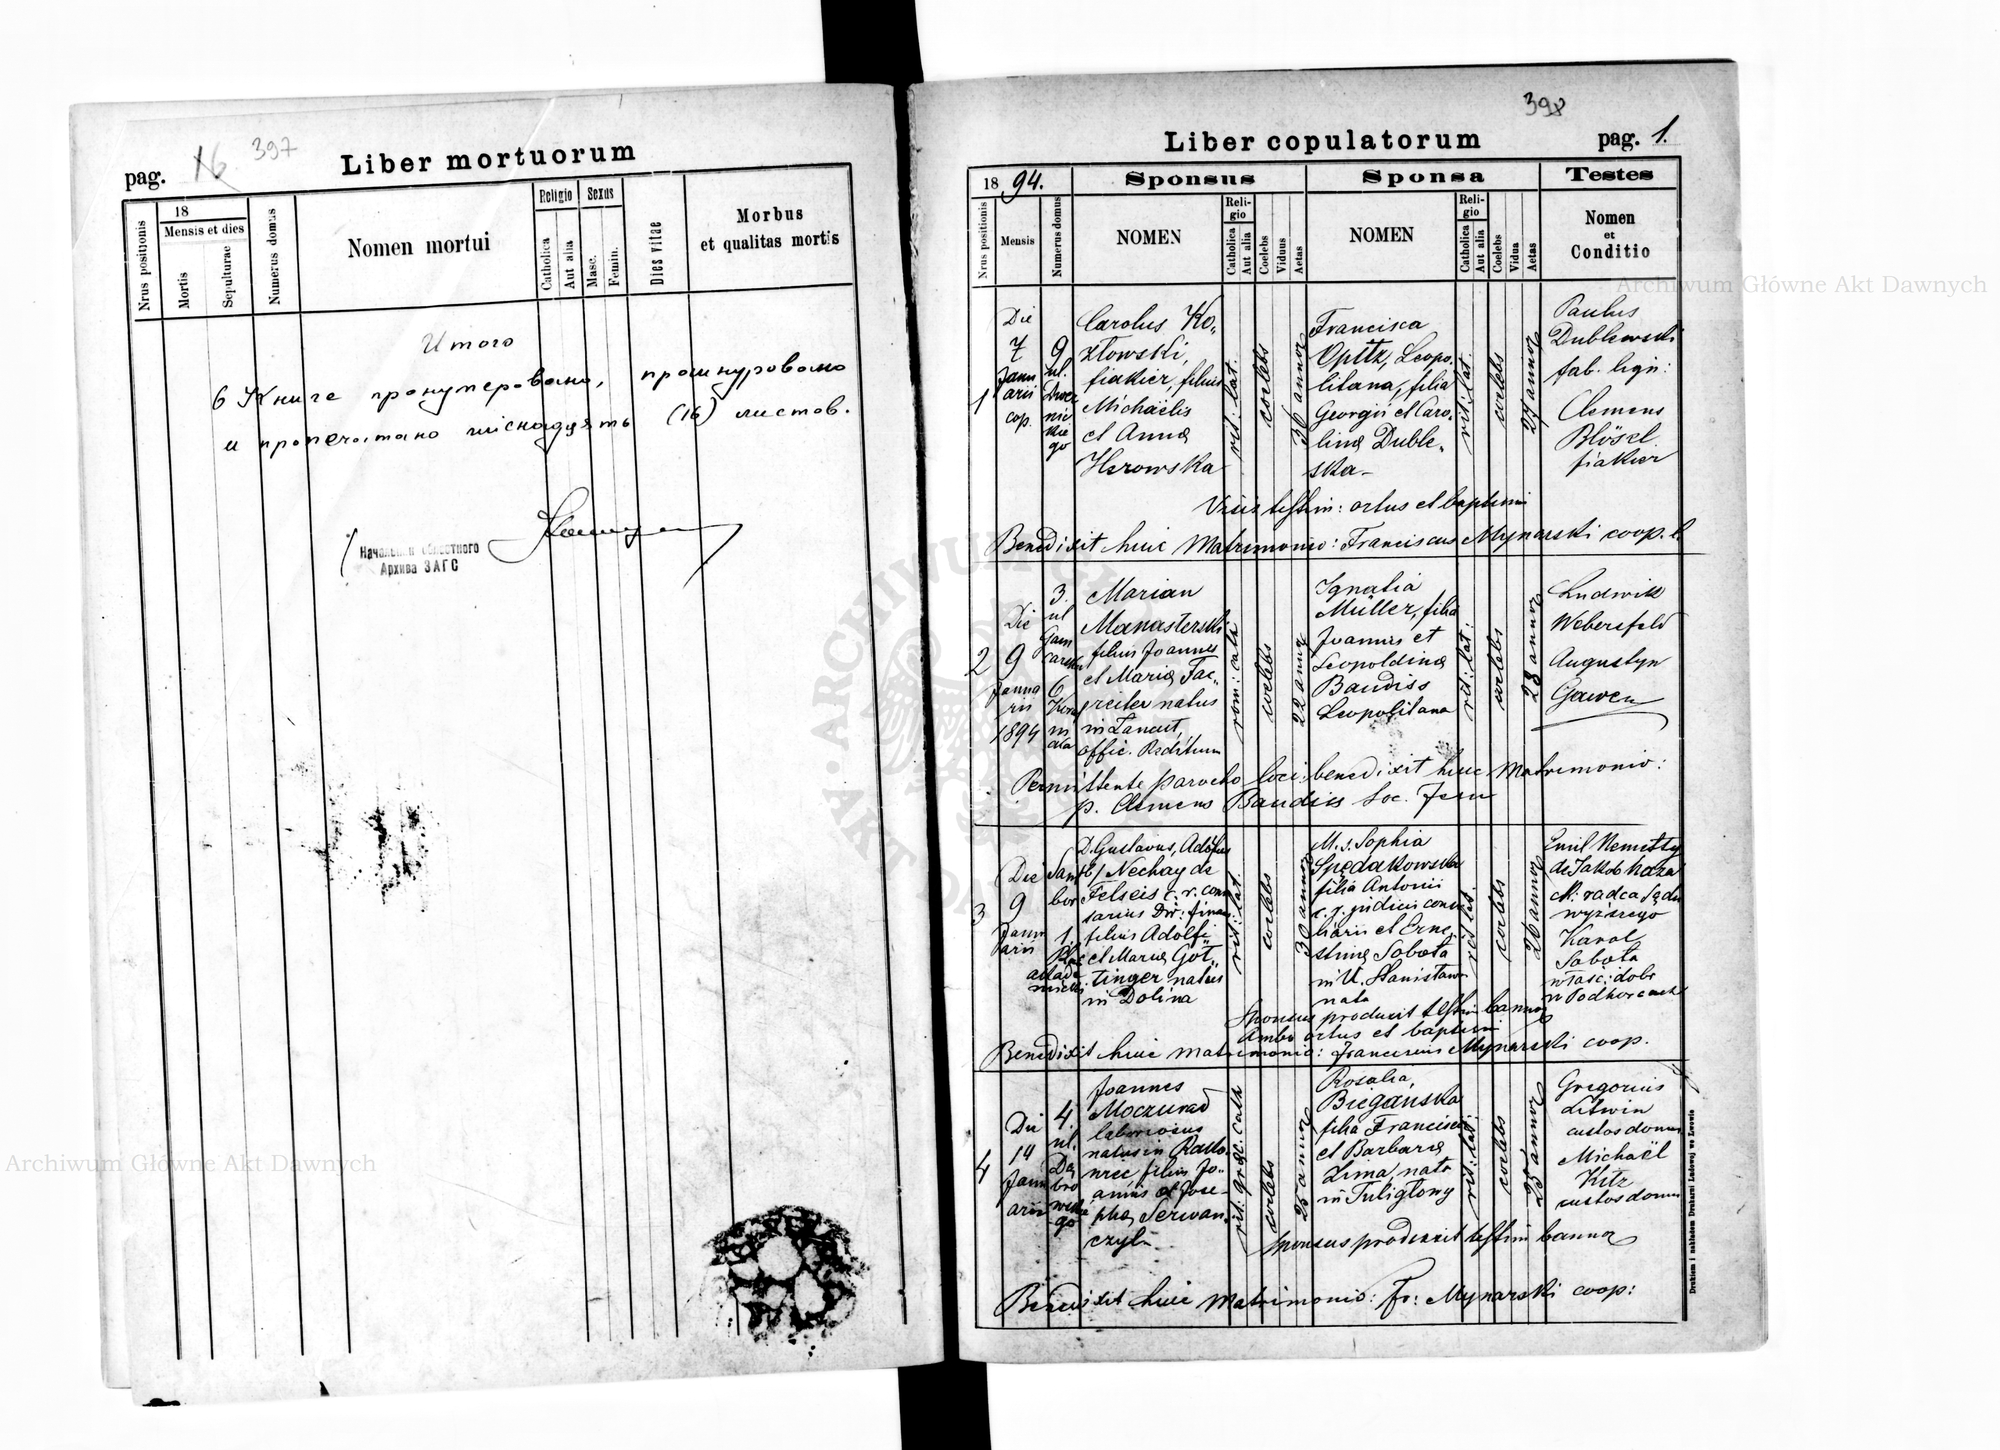 pag. 16 397
Liber mortuorum
Nrus positionis
18
Mensis et dies
Mortis
Sepulturae
Numerus domus
Nomen mortui
Religio
Catholica
Aut alia
Sexus
Masc.
Femin.
Dies vitae
Morbus
et qualitas mortis
Итого
В Книге пронумеровано, прошнуровано
и пропечатано шіснадцять (16) листов.
Начальник областного
Архива ЗАГС
398
Liber copulatorum
pag. 1.
1894.
Sponsus
Sponsa
Testes
Nrus positionis
Mensis
Numerus domus
NOMEN
Reli-
gio
Catholica
Aut alia
Coelebs
Viduus
Aetas
NOMEN
Reli-
gio
Catholica
Aut alia
Coelebs
Vidua
Aetas
Nomen
et
Conditio
1
Die
7
Janu
arii
cop.
9
ul.
Dwer
nic
kie
go
Carolus Ko„
złowski,
fiakier, filius
Michaëlis
et Annae
Herowska
rit: lat.
coelebs
36 annor
Francisca
Opitz, Leopo„
litana, filia
Georgii et Caro„
linae Duble„
ska
rit: lat.
coelebs
27 annor
Paulus
Dublewski
fab. lign:
Clemens
Blösel
fiakier
Visis testim: ortus et baptismi
Benedixit huic Matrimonio: Franciscus Mynarski coop.
2
Die
9
Janua
rii
1894
3.
ul
Garn
carska
6
Marian
Manasterski
filius Joannes
et Mariae
natus
in Łancut,
offic.
rom: cath
coelebs
22 annor
Ignatia
Müller, filia
Joannis et
Leopoldinae
Baudiss
Leopolitana
rit: lat:
coelebs
28 annor
Ludwik
Webersfeld
Augustyn
Gawen
Permittente parocho loci benedixit huic Matrimonio:
p. Clemens Baudiss Soc. Jesu
3
Die
9
Janu
arii
Sam
bor
1.
Plac
akade
micki
D. Gustavus, Adolfus
Nechay de
Felseis c. r. comi
sarius Dir: finan
filius Adolfi
et Mariae Göt„
tinger natus
in Dolina
rit: lat.
coelebs
30 annor
M. s. Sophia
Spędakowska
filia Antonii
c. r. judicis
et Erne
stinae Sobota
in U. Stanislawow
nata
rit: lat.
coelebs
26 annor
Emil
de Jakob
radca sądu
wyższego
Karol
Sobota
właśc: dobr
w Podhorcach
Sponsus produxit testim bannor
Ambo ortus et baptismi
Benedixit huic matrimonio: Franciscus Mynarski coop.
4
Die
14
Janu
arii
4.
ul.
Dą
bro
wskie
go
Joannes
Moczurad
laboriosus
natus in
filius Jo„
annis et Jose„
phae Serwan„
czyk
rit: graec. cath
coelebs
25 annor
Rosalia
Biegańska
filia Francisci
et Barbarae
Zima nata
in Tuligłowy
rit: lat:
coelebs
25 annor
Gregorius
Litwin
custos domus
Michaël
Kitz
custos domus
Sponsus produxit testim bannor
Benedixit huic Matrimonio: Fr: Mynarski coop:
Drukiem i nakładem Drukarni Ludowej we Lwowie
Archiwum Główne Akt Dawnych
Archiwum Główne Akt Dawnych